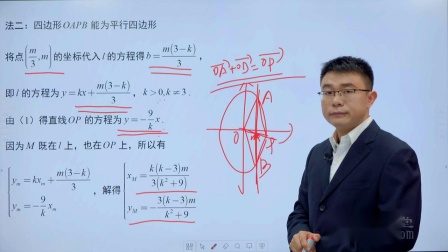 法二：四边形OAPB能为平行四边形
将点(m/3, m)的坐标代入l的方程得b=m(3-k)/3,
即l的方程为y=kx+m(3-k)/3, k>0,k≠3.
由（1）得直线OP的方程为y=-9/k x.
因为M既在l上，也在OP上，所以有
{y_m=kx_m+m(3-k)/3, y_m=-9/k x_m 解得 {x_M=k(k-3)m/3(k²+9), y_M=-3(k-3)m/k²+9
OA+OB=OP
A
O
P
B